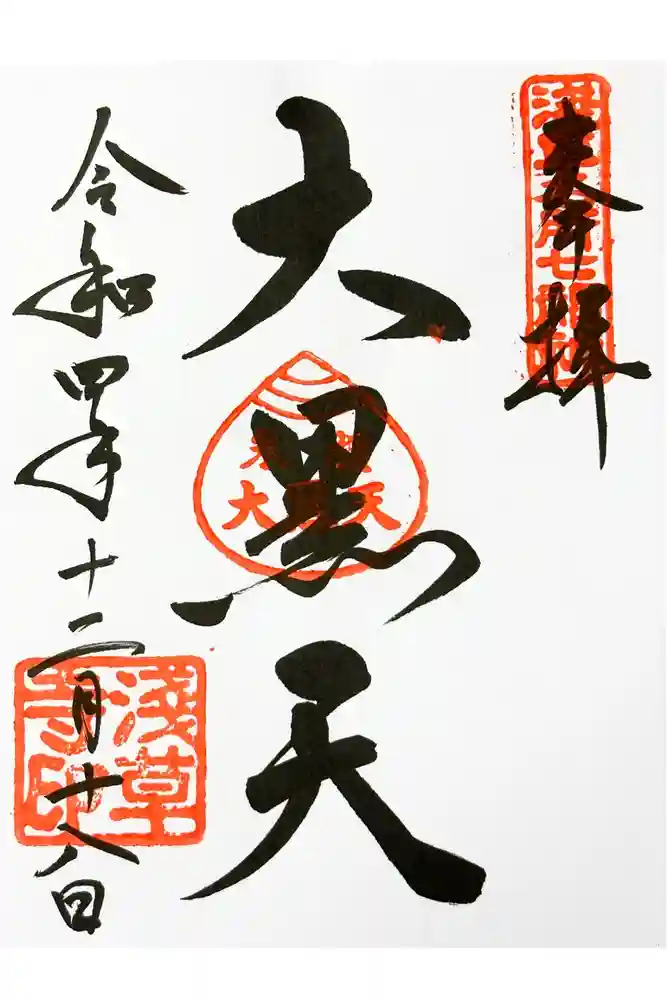 奉拝
浅草名所七福神
大黒天
大黒天
令和四年十二月十八日
淺草寺印